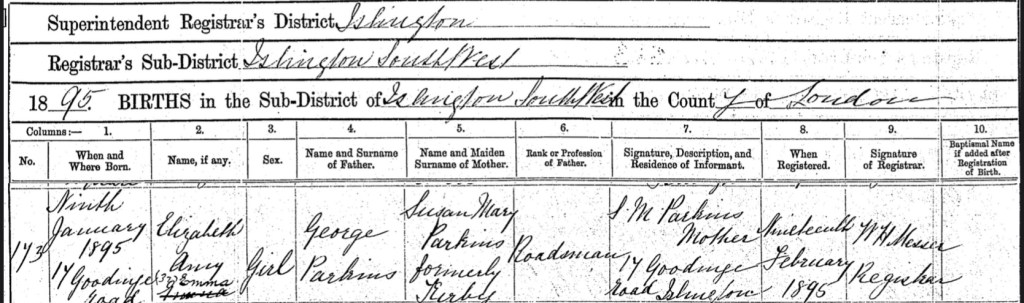 Superintendent Registrar's District Islington
Registrar's Sub-District Islington South West
1895. BIRTHS in the Sub-District of Islington South West in the County of London
Columns:— 1. 2. 3. 4. 5. 6. 7. 8. 9. 10.
No. When and Where Born. Name, if any. Sex. Name and Surname of Father. Name and Maiden Surname of Mother. Rank or Profession of Father. Signature, Description, and Residence of Informant. When Registered. Signature of Registrar. Baptismal Name if added after Registration of Birth.
173
Ninth
January
1895
17 Goodinge
Road
Elizabeth
Amy
Emma
Girl
George
Parkins
Susan Mary
Parkins
formerly
Kirby
Roadsman
S. M. Parkins
Mother
17 Goodinge
Road Islington
Nineteenth
February
1895
W H Messer
Registrar